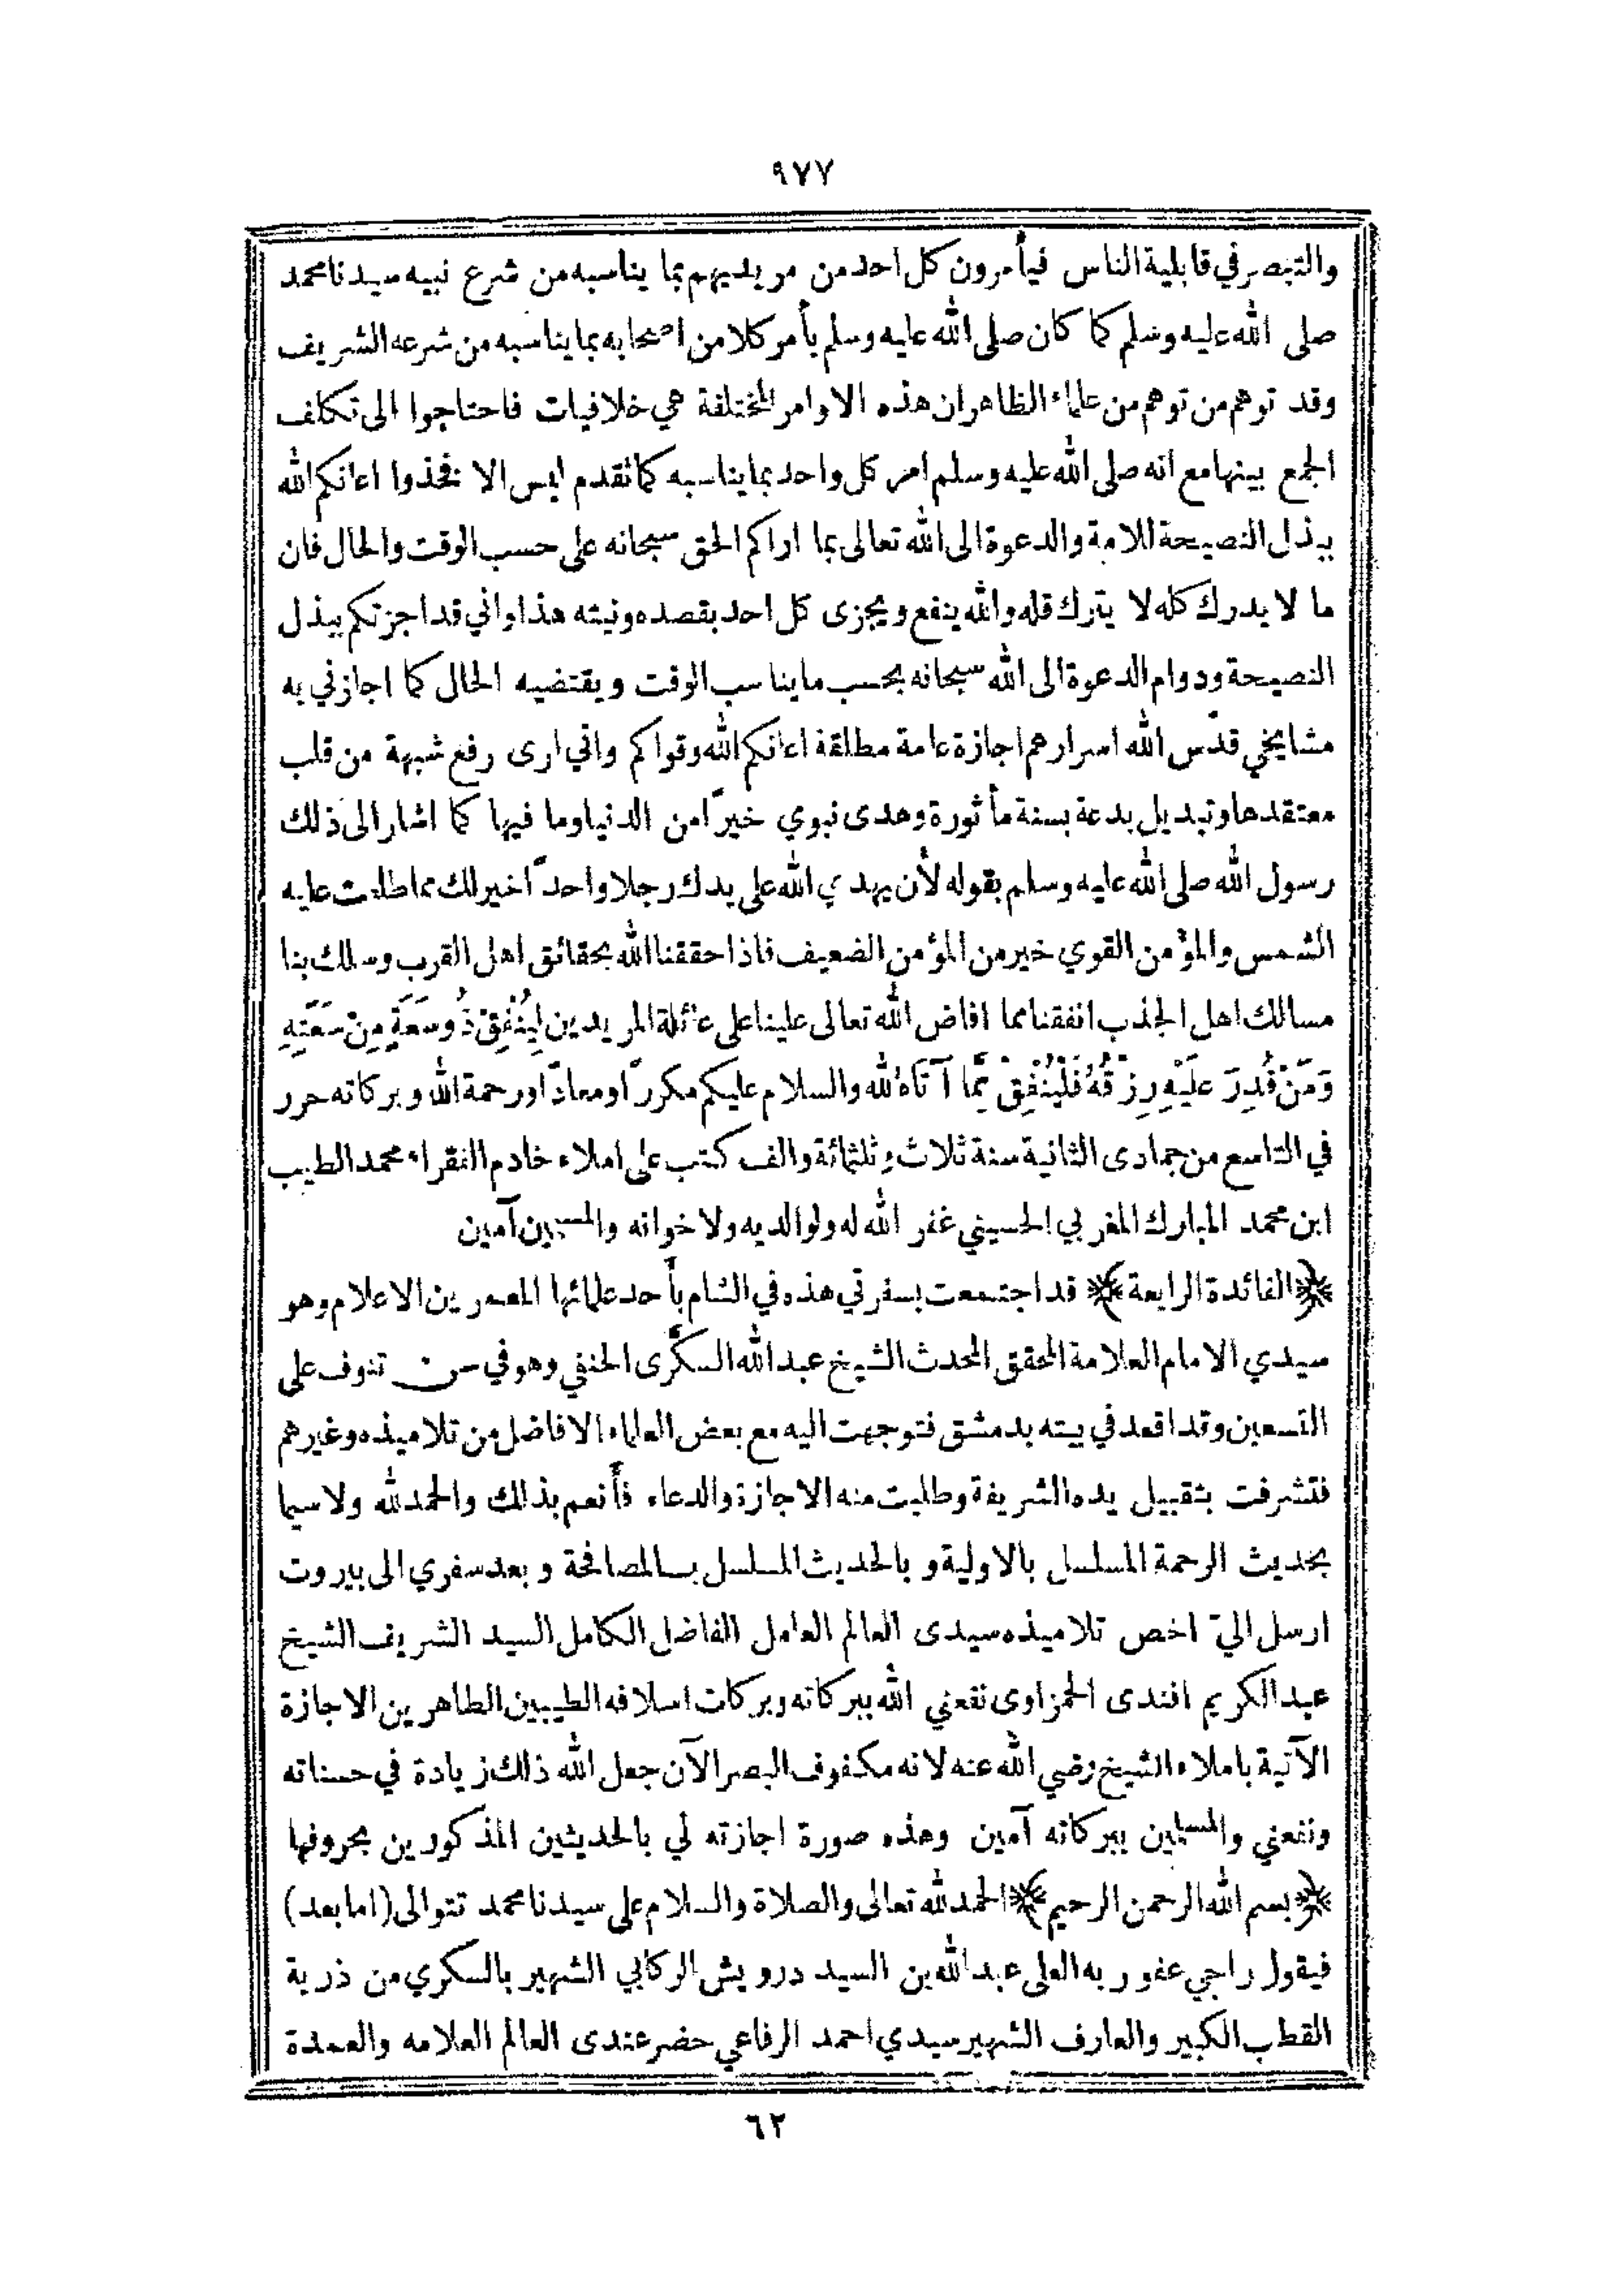 ٩٧٧
والتبصر في قابلية الناس فيأمرون كل احد من مريديهم بما يناسبه من شرع نبيه سيدنا محمد
صلى الله عليه وسلم كما كان صلى الله عليه وسلم يأمر كلا من اصحابه بما يناسبه من شرعه الشريف
وقد توهم من توهم من علماء الظاهر ان هذه الاوامر المختلفة هي خلافيات فاحتاجوا الى تكلف
الجمع بينها مع انه صلى الله عليه وسلم امر كل واحد بما يناسبه كما تقدم ليس الا فخذوا اعانكم الله
ببذل النصيحة للامة والدعوة الى الله تعالى بما اراكم الحق سبحانه على حسب الوقت والحال فان
ما لا يدرك كله لا يترك قله والله ينفع ويجزى كل احد بقصده ونيته هذا واني قد اجزتكم ببذل
النصيحة ودوام الدعوة الى الله سبحانه بحسب ما يناسب الوقت ويقتضيه الحال كما اجازني به
مشايخي قدّس الله اسرارهم اجازة عامة مطلقة اعانكم الله وقواكم واني ارى رفع شبهة من قلب
معتقدها وتبديل بدعة بسنة مأثورة وهدى نبوي خيراً من الدنيا وما فيها كما اشار الى ذلك
رسول الله صلى الله عليه وسلم بقوله لأن يهدي الله على يدك رجلا واحداً خير لك مما طلعت عليه
الشمس والمؤمن القوي خير من المؤمن الضعيف فاذا حققنا الله بحقائق اهل القرب وسلك بنا
مسالك اهل الجذب انفقنا مما افاض الله تعالى علينا على عائلة المريدين لِيُنْفِقْ ذُو سَعَةٍ مِنْ سَعَتِهِ
وَمَنْ قُدِرَ عَلَيْهِ رِزْقُهُ فَلْيُنْفِقْ مِمَّا آتَاهُ الله والسلام عليكم مكرراً ومعاداً ورحمة الله وبركاته حرر
في التاسع من جمادى الثانية سنة ثلاث وثلثمائة والف كتب على املاء خادم الفقراء محمد الطيب
ابن محمد المبارك المغربي الحسيني غفر الله له ولوالديه ولاخوانه والمسلمين آمين
﴿الفائدة الرابعة﴾ قد اجتمعت بسفرتي هذه في الشام بأحد علمائها المعمرين الاعلام وهو
سيدي الامام العلامة المحقق المحدث الشيخ عبد الله السكّرى الحنفي وهو في سن تنوف على
التسعين وقد اقعد في بيته بدمشق فتوجهت اليه مع بعض العلماء الافاضل من تلاميذه وغيرهم
فتشرفت بتقبيل يده الشريفة وطلبت منه الاجازة والدعاء فأنعم بذلك والحمد لله ولا سيما
بحديث الرحمة المسلسل بالاولية وبالحديث المسلسل بالمصافحة وبعد سفري الى بيروت
ارسل اليّ اخص تلاميذه سيدى العالم العامل الفاضل الكامل السيد الشريف الشيخ
عبد الكريم افندى الحمزاوى نفعني الله ببركاته وبركات اسلافه الطيبين الطاهرين الاجازة
الآتية باملاء الشيخ رضي الله عنه لانه مكفوف البصر الآن جعل الله ذلك زيادة في حسناته
ونفعني والمسلمين ببركاته آمين وهذه صورة اجازته لي بالحديثين المذكورين بحروفها
﴿بسم الله الرحمن الرحيم﴾ الحمد لله تعالى والصلاة والسلام على سيدنا محمد تتوالى (اما بعد)
فيقول راجي عفو ربه العلى عبد الله بن السيد درويش الركابي الشهير بالسكري من ذرية
القطب الكبير والعارف الشهير سيدي احمد الرفاعي حضر عندى العالم العلامه والعمدة
٦٢